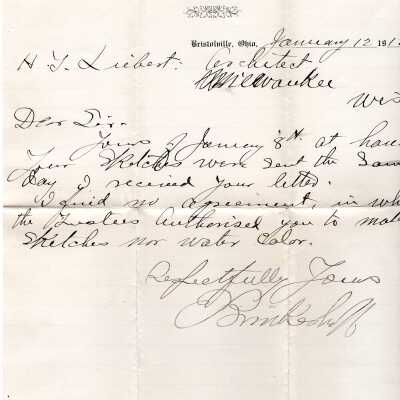 Bristolville, Ohio, January 12 191
H. T. Liebert. Architect
Milwaukee
Wis
Dear Sir.
Yours of January 8th. at han
Your Sketches were sent the Sam
day I received your letter.
I find no agreement, in wh
the Trustees Authorised you to mak
Sketches nor Water Color.
Respectfully Yours
Brinkerhoff